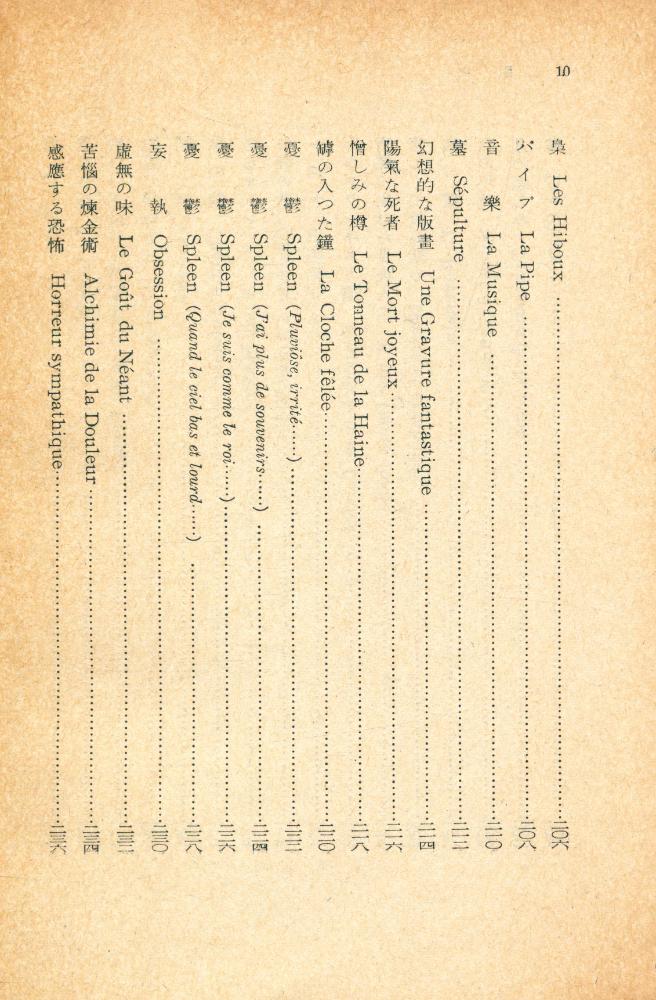 10
梟 Les Hiboux……二〇六
パイプ La Pipe……二〇八
音樂 La Musique……二一〇
墓 Sépulture……二一二
幻想的な版畫 Une Gravure fantastique……二一四
陽氣な死者 Le Mort joyeux……二一六
憎しみの樽 Le Tonneau de la Haine……二一八
罅の入つた鐘 La Cloche fêlée……二二〇
憂鬱 Spleen (Pluviôse, irrité……)……二二二
憂鬱 Spleen (J'ai plus de souvenirs……)……二二四
憂鬱 Spleen (Je suis comme le roi……)……二二六
憂鬱 Spleen (Quand le ciel bas et lourd……)……二二八
妄執 Obsession……二三〇
虛無の味 Le Goût du Néant……二三二
苦惱の煉金術 Alchimie de la Douleur……二三四
感應する恐怖 Horreur sympathique……二三六